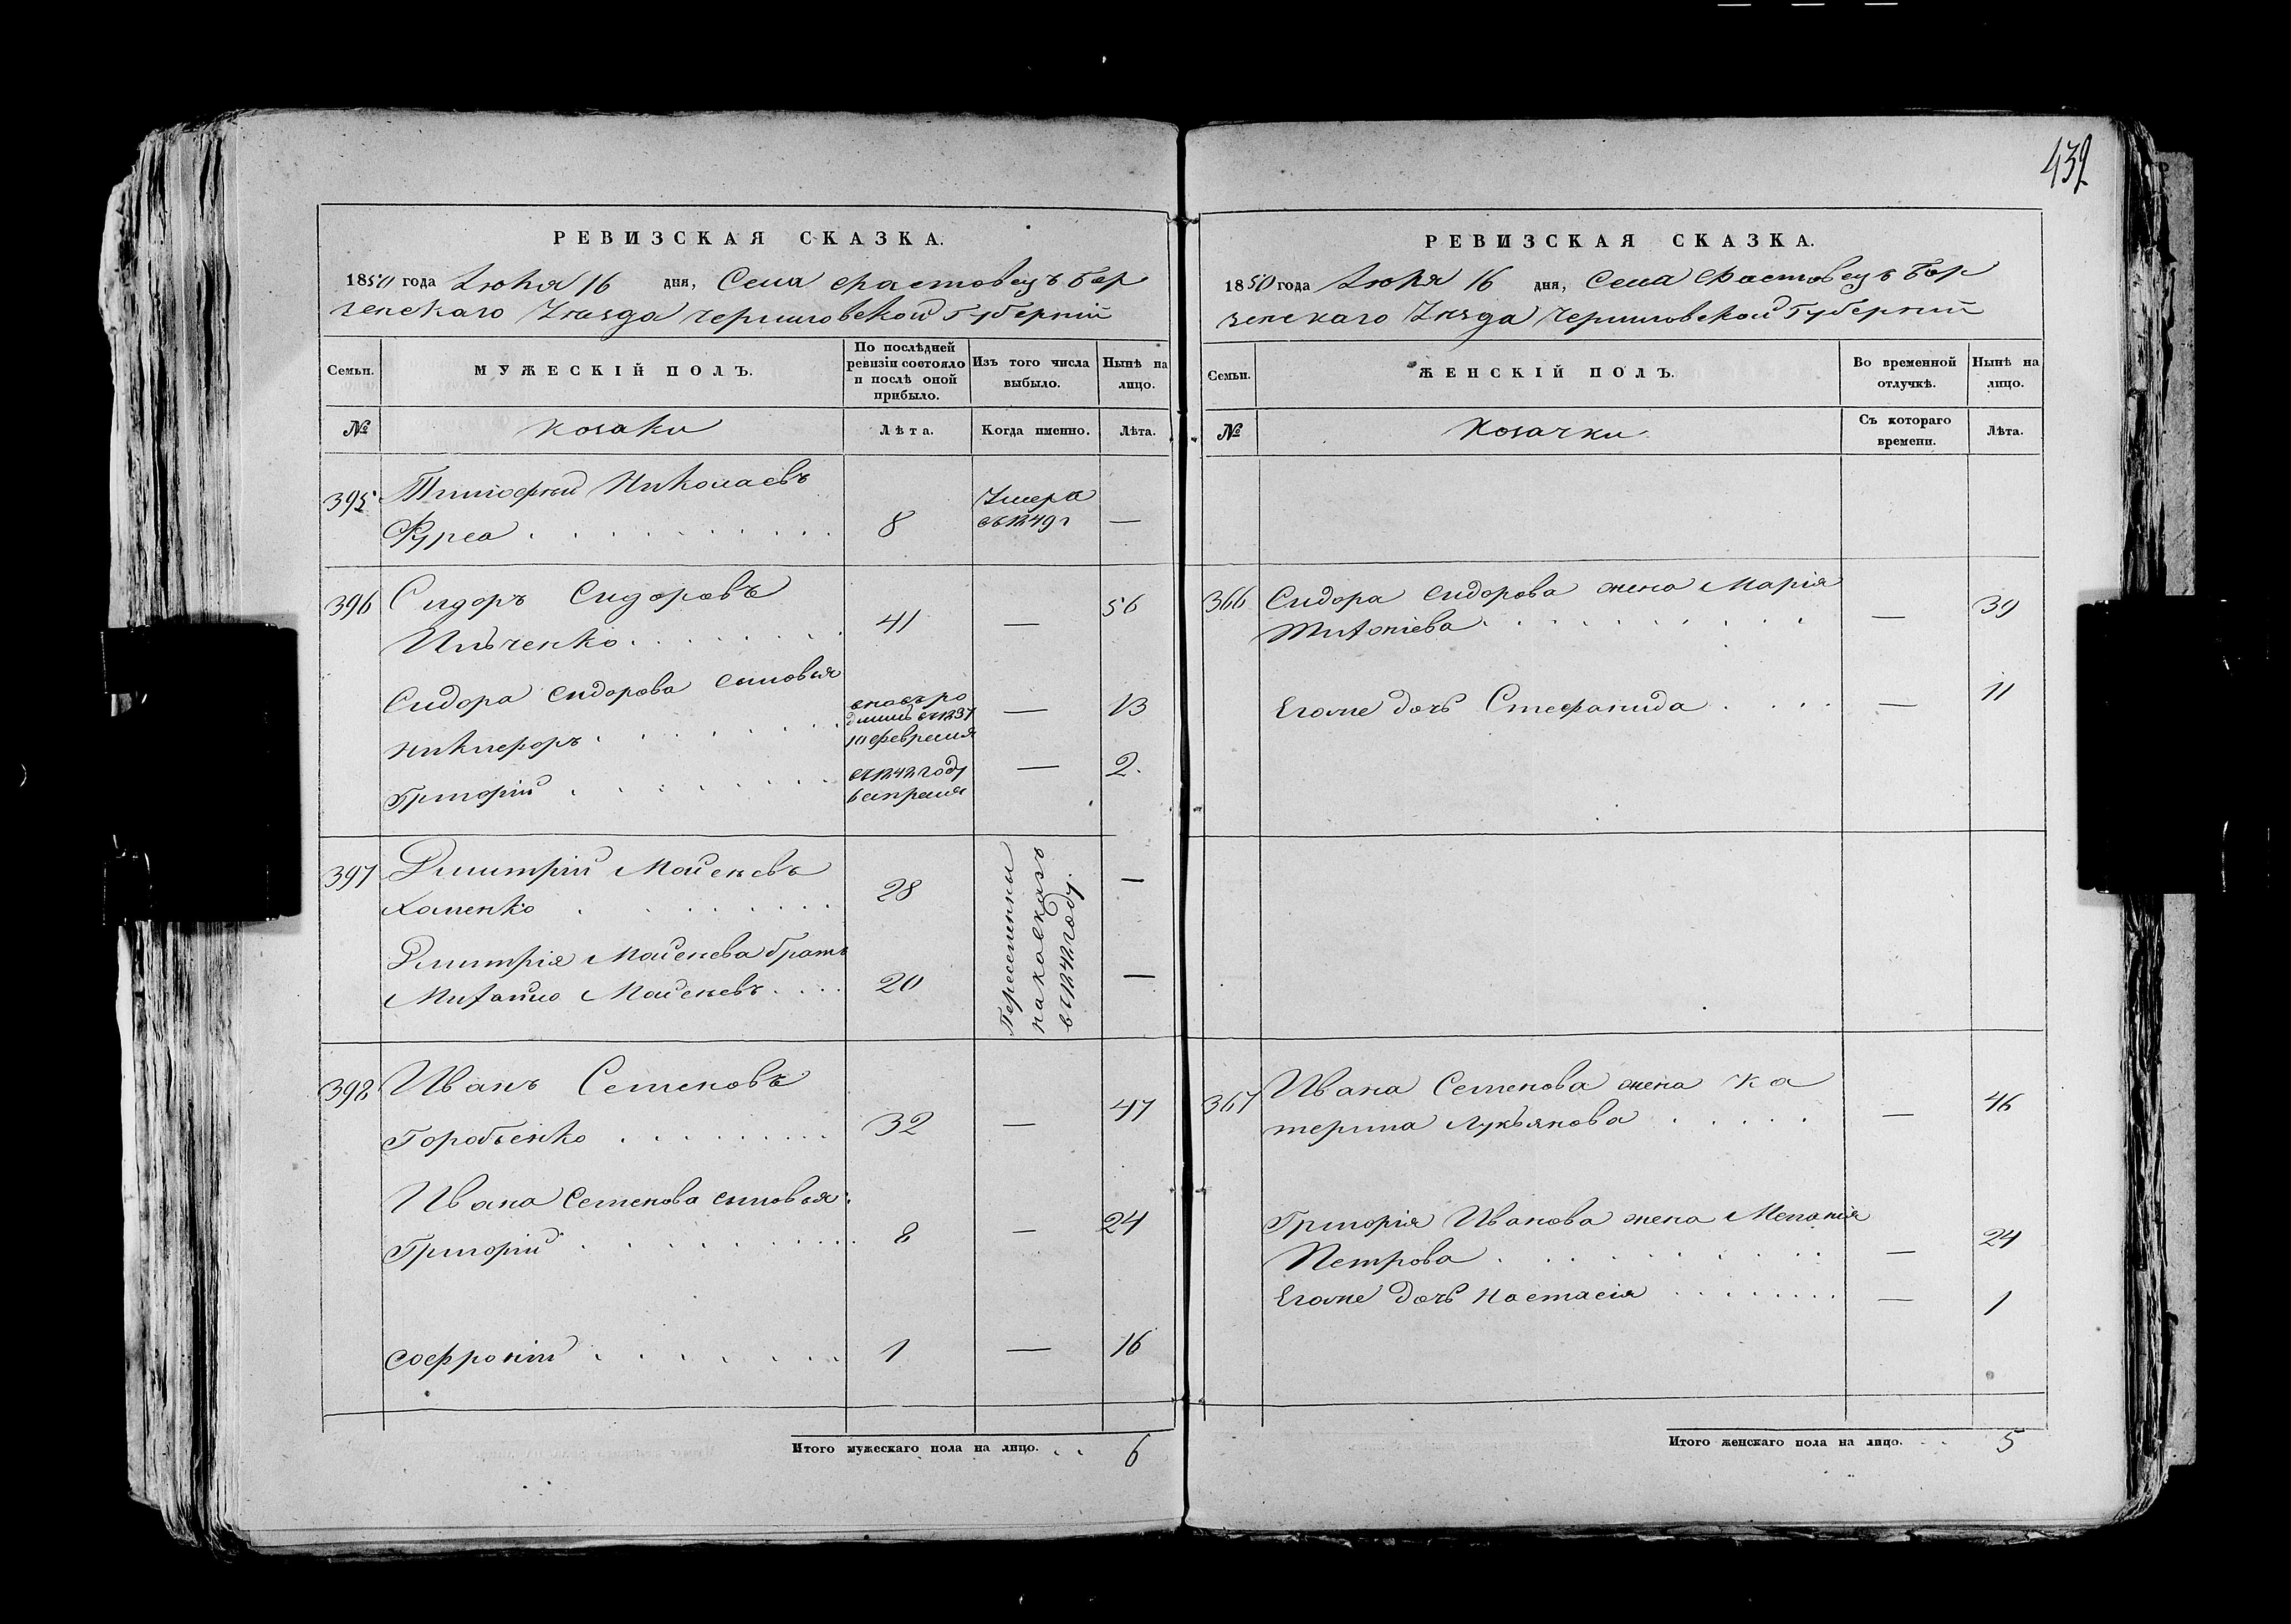 439
РЕВИЗСКАЯ СКАЗКА.
1850 года Июня 16 дня, Села Фастовецъ Бор
зенскаго Уезда Черниговской Губерній
Семьи.
МУЖЕСКІЙ ПОЛЪ.
По послѣдней
ревизіи состояло
и послѣ оной
прибыло.
Изъ того числа
выбыло.
Нынѣ на
лицо.
№
козаки
Лѣта.
Когда именно.
Лѣта.
395
Тимофей Николаевъ
8
Умеръ
въ 1849 г
—
396
Сидоръ Сидоровъ
Ильченко
41
—
56
Сидора Сидорова сыновья
Никифоръ
10 февраля
—
13
Григорій
6 апреля
—
2.
397
Дмитрій Мойсеевъ
Хоменко
28
—
Дмитрія Мойсеева братъ
Михайло Мойсеевъ
20
—
398
Иванъ Семеновъ
Горобченко
32
—
47
Ивана Семенова сыновья:
Григорій
8
—
24
Софроній
1
—
16
Итого мужескаго пола на лицо. . . 6
РЕВИЗСКАЯ СКАЗКА.
1850 года Июня 16 дня, Села Фастовецъ Бор
зенскаго Уезда Черниговской Губерній
Семьи.
ЖЕНСКІЙ ПОЛЪ.
Во временной
отлучкѣ.
Нынѣ на
лицо.
№
Козачки
Съ котораго
времени.
Лѣта.
366
Сидора Сидорова жена Марія
—
39
Егоже дочь Стефанида
—
11
367
Ивана Семенова жена Ка
терина Лукьянова
—
46
Григорія Иванова жена Меланія
Петрова
—
24
Егоже дочь Настасія
—
1
Итого женскаго пола на лицо. . . 5